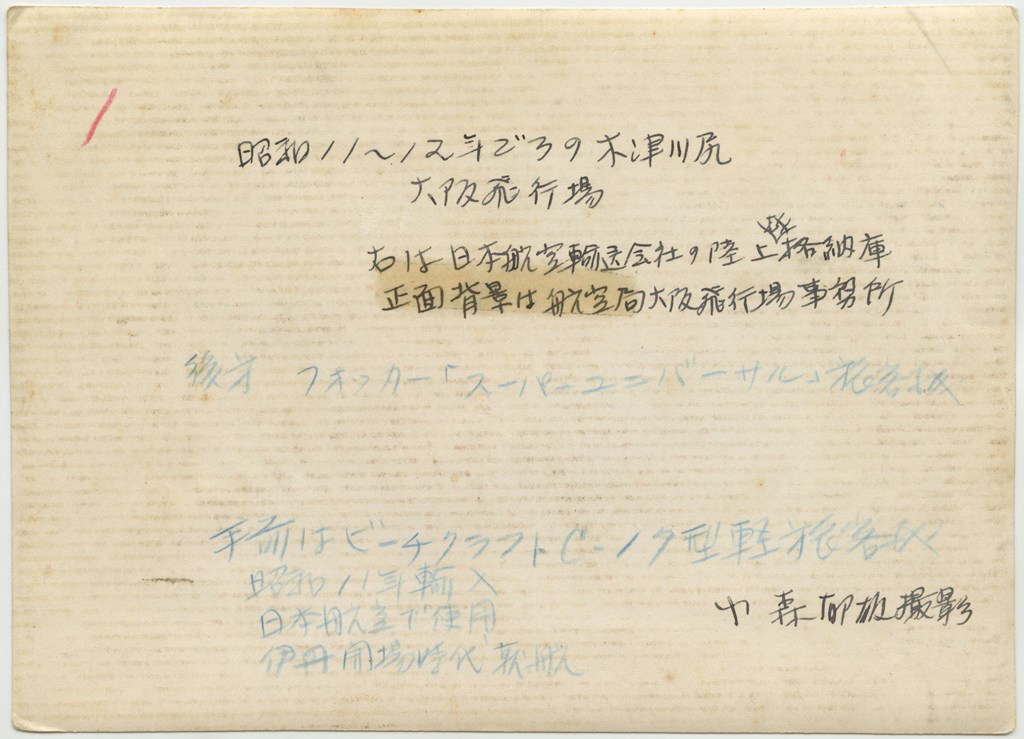 昭和11〜12年ごろの木津川尻
大阪飛行場
右は日本航空輸送会社の陸上機格納庫
正面背景は航空局大阪飛行場事務所
後方 フォッカー「スーパーユニバーサル」旅客機
手前はビーチクラフトC-17型軽旅客機
昭和11年輸入
日本航空で使用
伊丹開場時代就航
小森郁雄撮影